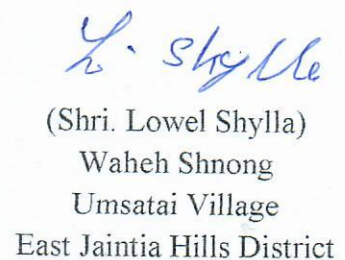 L. Shylla
(Shri. Lowel Shylla)
Waheh Shnong
Umsatai Village
East Jaintia Hills District